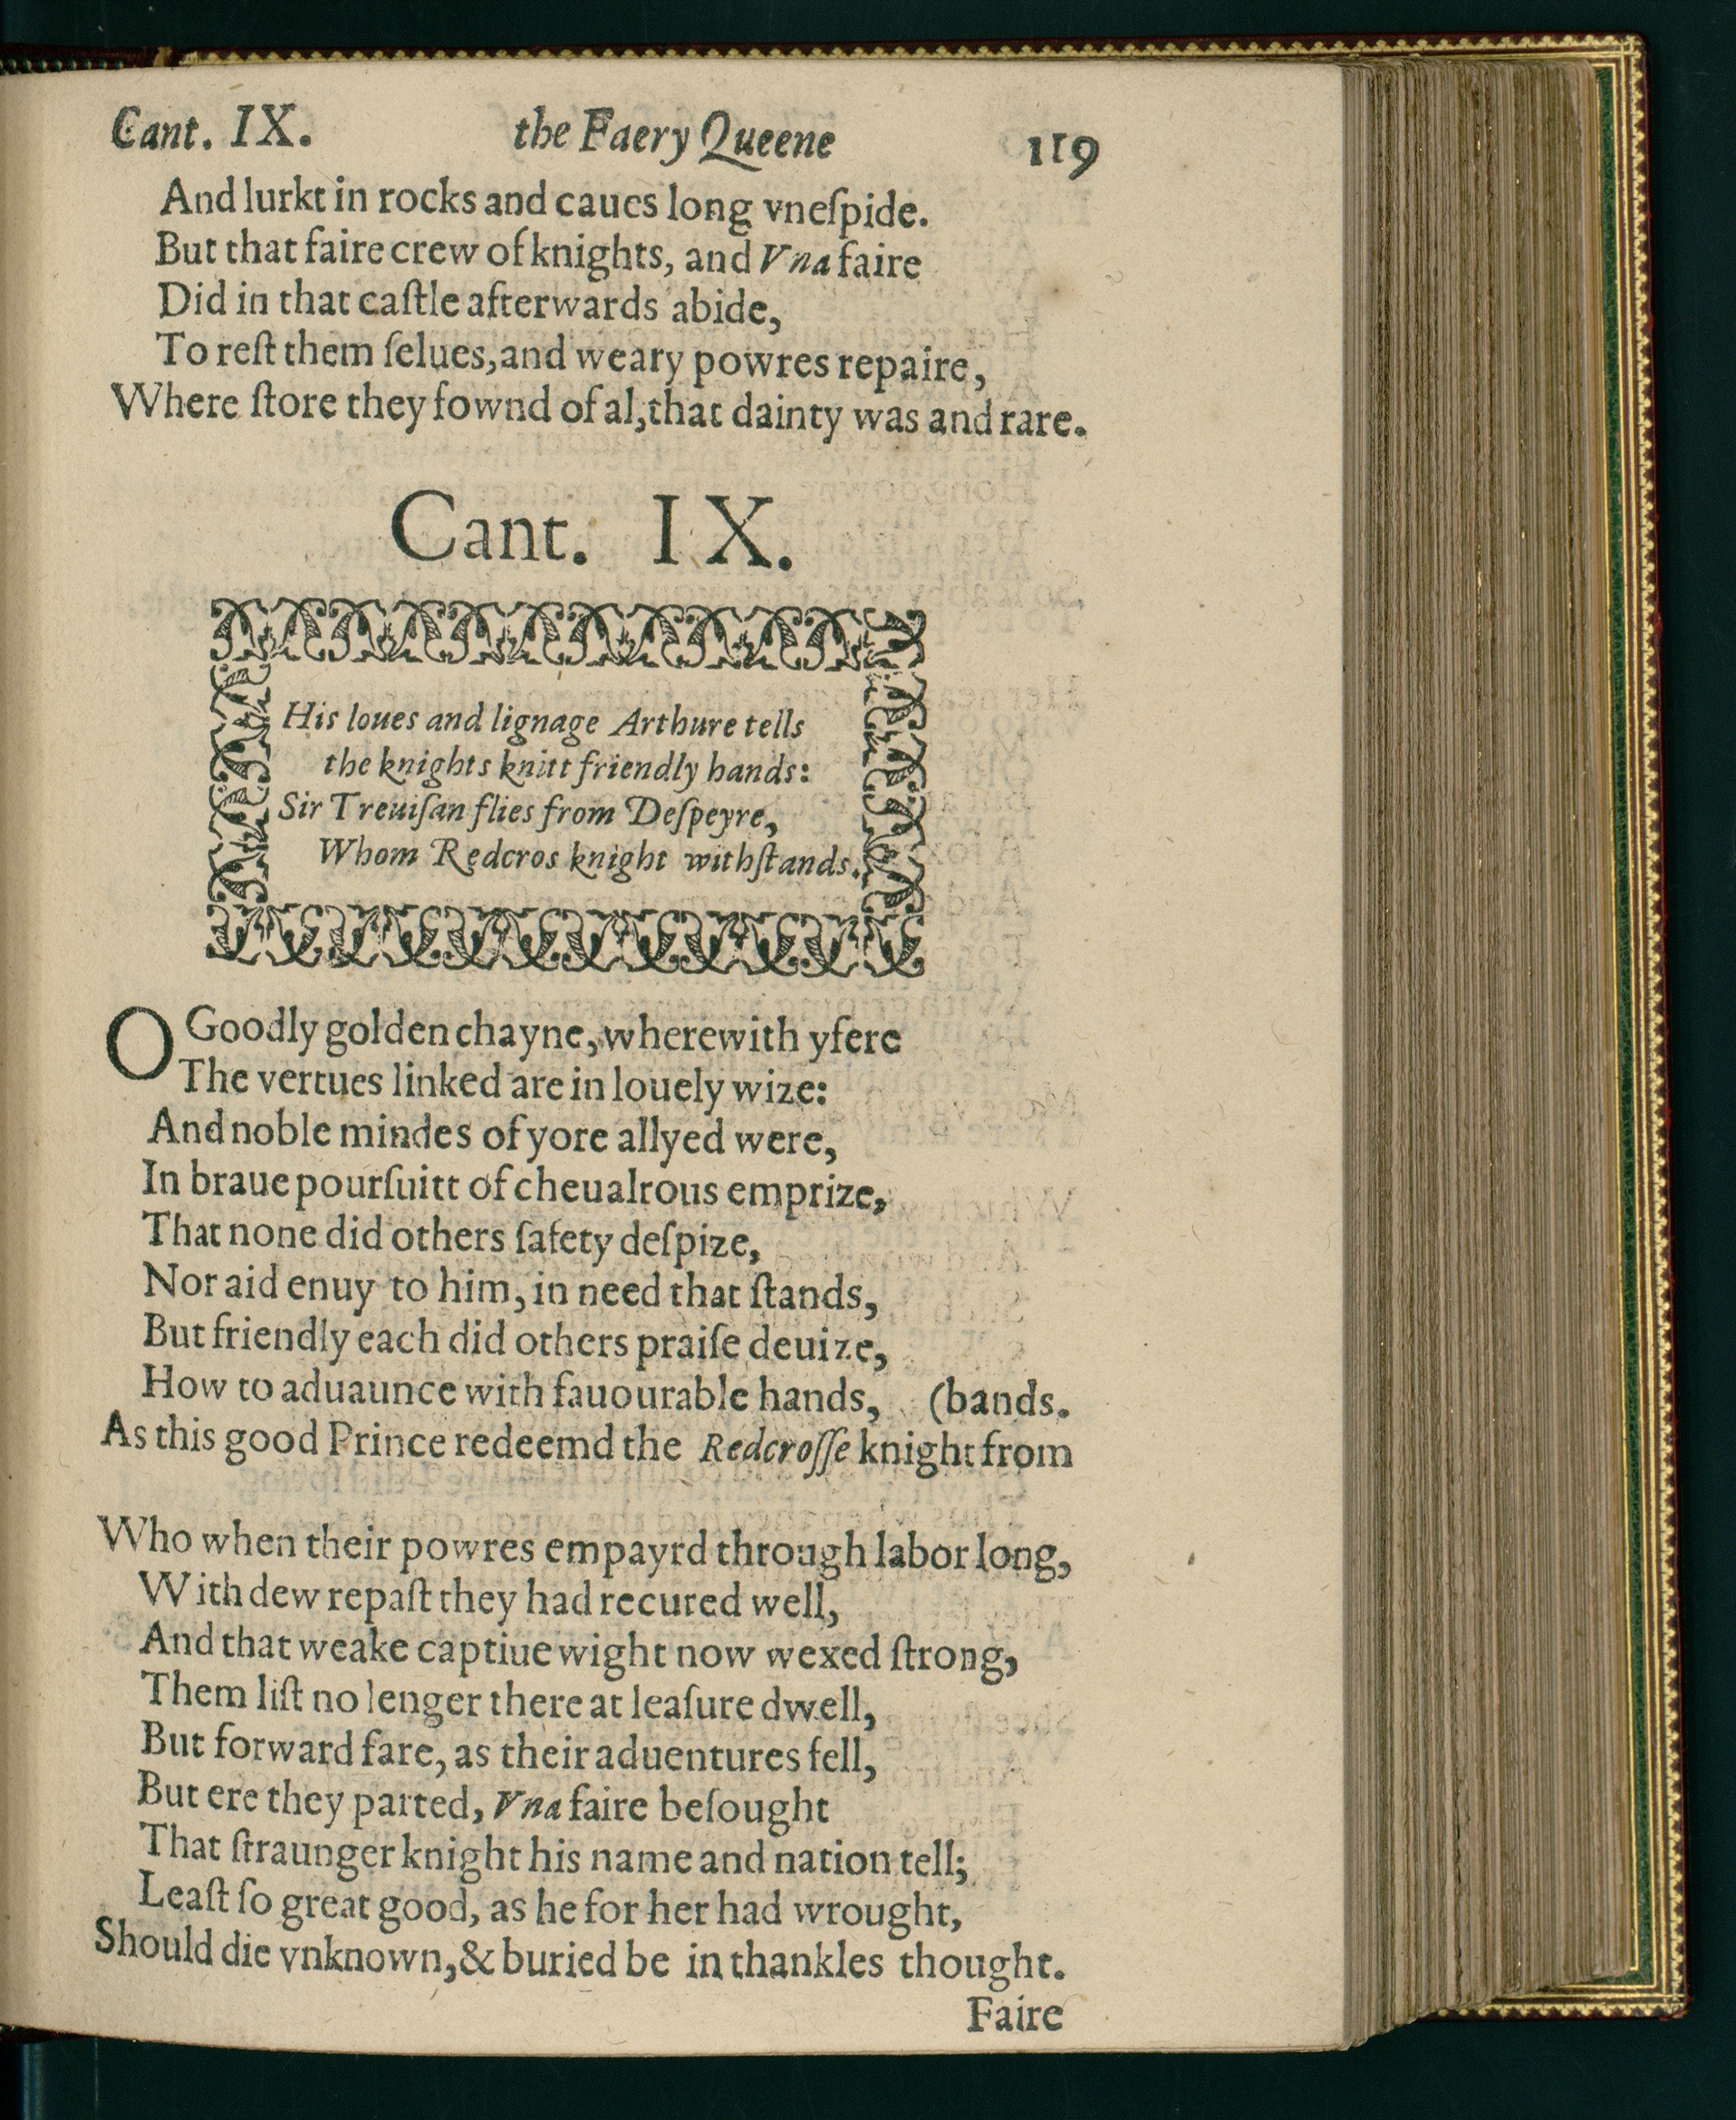 Cant. IX. the Faery Queene 119
And lurkt in rocks and caues long vneſpide.
But that faire crew of knights, and Vna faire
Did in that caſtle afterwards abide,
To reſt them ſelues, and weary powres repaire,
Where ſtore they fownd of al, that dainty was and rare.
Cant. IX.
His loues and lignage Arthure tells
the knights knitt friendly bands:
Sir Treuiſan flies from Deſpeyre,
Whom Redcros knight withſtands.
O Goodly golden chayne, wherewith yfere
The vertues linked are in louely wize:
And noble mindes of yore allyed were,
In braue pourſuitt of cheualrous emprize,
That none did others ſafety deſpize,
Nor aid enuy to him, in need that ſtands,
But friendly each did others praiſe deuize,
How to aduaunce with fauourable hands, (bands.
As this good Prince redeemd the Redcroſſe knight from
Who when their powres empayrd through labor long,
With dew repaſt they had recured well,
And that weake captiue wight now wexed ſtrong,
Them liſt no lenger there at leaſure dwell,
But forward fare, as their aduentures fell,
But ere they parted, Vna faire beſought
That ſtraunger knight his name and nation tell;
Leaſt ſo great good, as he for her had wrought,
Should die vnknown, & buried be in thankles thought.
Faire